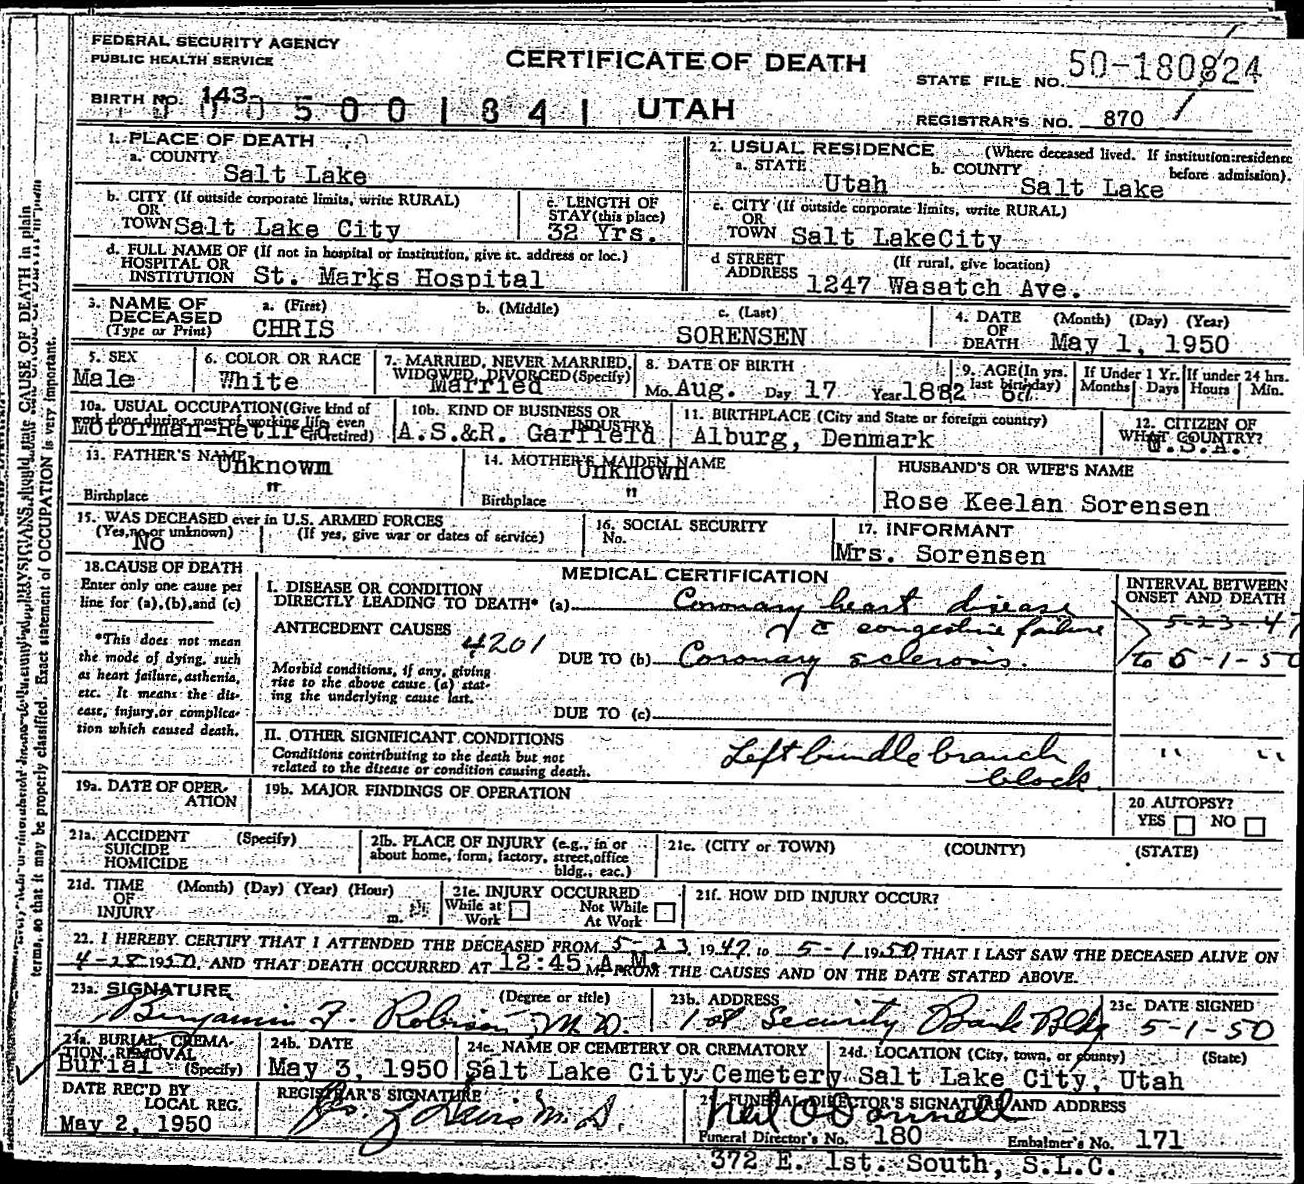 FEDERAL SECURITY AGENCY
PUBLIC HEALTH SERVICE
CERTIFICATE OF DEATH
STATE FILE NO. 50-180824
BIRTH NO. 143
UTAH
REGISTRAR'S NO. 870
1. PLACE OF DEATH
a. COUNTY
Salt Lake
2. USUAL RESIDENCE (Where deceased lived. If institution:residence before admission).
a. STATE Utah b. COUNTY Salt Lake
b. CITY (If outside corporate limits, write RURAL)
OR
TOWN Salt Lake City
c. LENGTH OF
STAY (this place)
32 Yrs.
c. CITY (If outside corporate limits, write RURAL)
OR
TOWN Salt LakeCity
d. FULL NAME OF (If not in hospital or institution, give st. address or loc.)
HOSPITAL OR
INSTITUTION St. Marks Hospital
d STREET (If rural, give location)
ADDRESS 1247 Wasatch Ave.
3. NAME OF DECEASED
(Type or Print)
a. (First)
CHRIS
b. (Middle)
c. (Last)
SORENSEN
4. DATE OF DEATH (Month) (Day) (Year)
May 1, 1950
5. SEX
Male
6. COLOR OR RACE
White
7. MARRIED, NEVER MARRIED,
WIDOWED, DIVORCED (Specify)
Married
8. DATE OF BIRTH
Mo. Aug. Day 17 Year 1882
9. AGE (In yrs. last birthday)
If Under 1 Yr.
Months Days
If under 24 hrs.
Hours Min.
10a. USUAL OCCUPATION (Give kind of work done during most of working life, even if retired)
Motorman-Retired
10b. KIND OF BUSINESS OR INDUSTRY
A.S.&R. Garfield
11. BIRTHPLACE (City and State or foreign country)
Alburg, Denmark
12. CITIZEN OF WHAT COUNTRY?
U.S.A.
13. FATHER'S NAME
Unknown
Birthplace "
14. MOTHER'S MAIDEN NAME
Unknown
Birthplace "
HUSBAND'S OR WIFE'S NAME
Rose Keelan Sorensen
15. WAS DECEASED ever in U.S. ARMED FORCES
(Yes, no or unknown) (If yes, give war or dates of service)
No
16. SOCIAL SECURITY
No.
17. INFORMANT
Mrs. Sorensen
18. CAUSE OF DEATH
Enter only one cause per
line for (a), (b), and (c)
*This does not mean
the mode of dying, such
as heart failure, asthenia,
etc. It means the dis-
ease, injury, or complica-
tion which caused death.
MEDICAL CERTIFICATION
I. DISEASE OR CONDITION
DIRECTLY LEADING TO DEATH* (a) Coronary heart disease
c̄ congestive failure
ANTECEDENT CAUSES
4201
Morbid conditions, if any, giving
rise to the above cause (a) stat-
ing the underlying cause last.
DUE TO (b) Coronary sclerosis.
DUE TO (c)
INTERVAL BETWEEN
ONSET AND DEATH
5-23-47
to 5-1-50
II. OTHER SIGNIFICANT CONDITIONS
Conditions contributing to the death but not
related to the disease or condition causing death.
Left bundle branch
block.
" "
19a. DATE OF OPER-
ATION
19b. MAJOR FINDINGS OF OPERATION
20 AUTOPSY?
YES NO
21a. ACCIDENT (Specify)
SUICIDE
HOMICIDE
21b. PLACE OF INJURY (e.g., in or
about home, form, factory, street, office
bldg., eac.)
21c. (CITY or TOWN) (COUNTY) (STATE)
21d. TIME (Month) (Day) (Year) (Hour)
OF
INJURY m.
21e. INJURY OCCURRED
While at Work Not While At Work
21f. HOW DID INJURY OCCUR?
22. I HEREBY CERTIFY THAT I ATTENDED THE DECEASED FROM 5-23, 1947, to 5-1 1950 THAT I LAST SAW THE DECEASED ALIVE ON
4-28 1950, AND THAT DEATH OCCURRED AT 12:45 A.M. M, FROM THE CAUSES AND ON THE DATE STATED ABOVE.
23a. SIGNATURE (Degree or title)
Benjamin F. Robison M.D.
23b. ADDRESS
Security Bank Bldg
23c. DATE SIGNED
5-1-50
24a. BURIAL, CREMA-
TION, REMOVAL
(Specify)
Burial
24b. DATE
May 3, 1950
24c. NAME OF CEMETERY OR CREMATORY
Salt Lake City Cemetery
24d. LOCATION (City, town, or county) (State)
Salt Lake City, Utah
DATE REC'D BY
LOCAL REG.
May 2, 1950
REGISTRAR'S SIGNATURE
M.D.
FUNERAL DIRECTOR'S SIGNATURE AND ADDRESS
Neil O'Donnell
Funeral Director's No. 180 Embalmer's No. 171
372 E. 1st. South, S.L.C.
terms, so that it may be properly classified. Exact statement of OCCUPATION is very important.